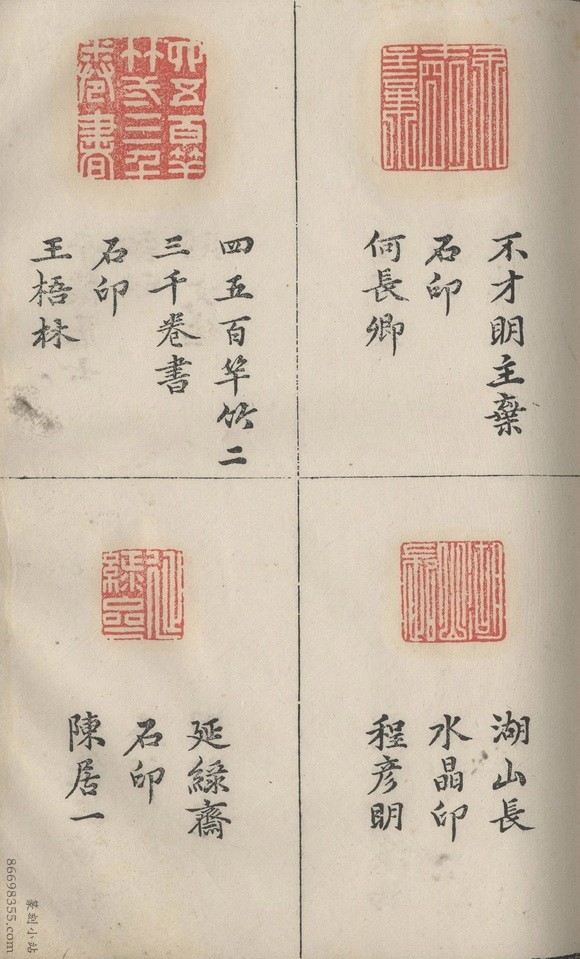 不才明主棄
石印
何長卿
四五百竿竹二
三千卷書
石印
王梧林
湖山長
水晶印
程彦明
延綠齋
石印
陳居一
篆刻小站
86698355.com